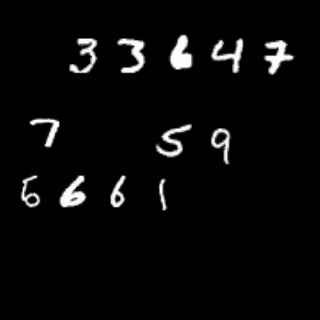 33647
7 59
6661